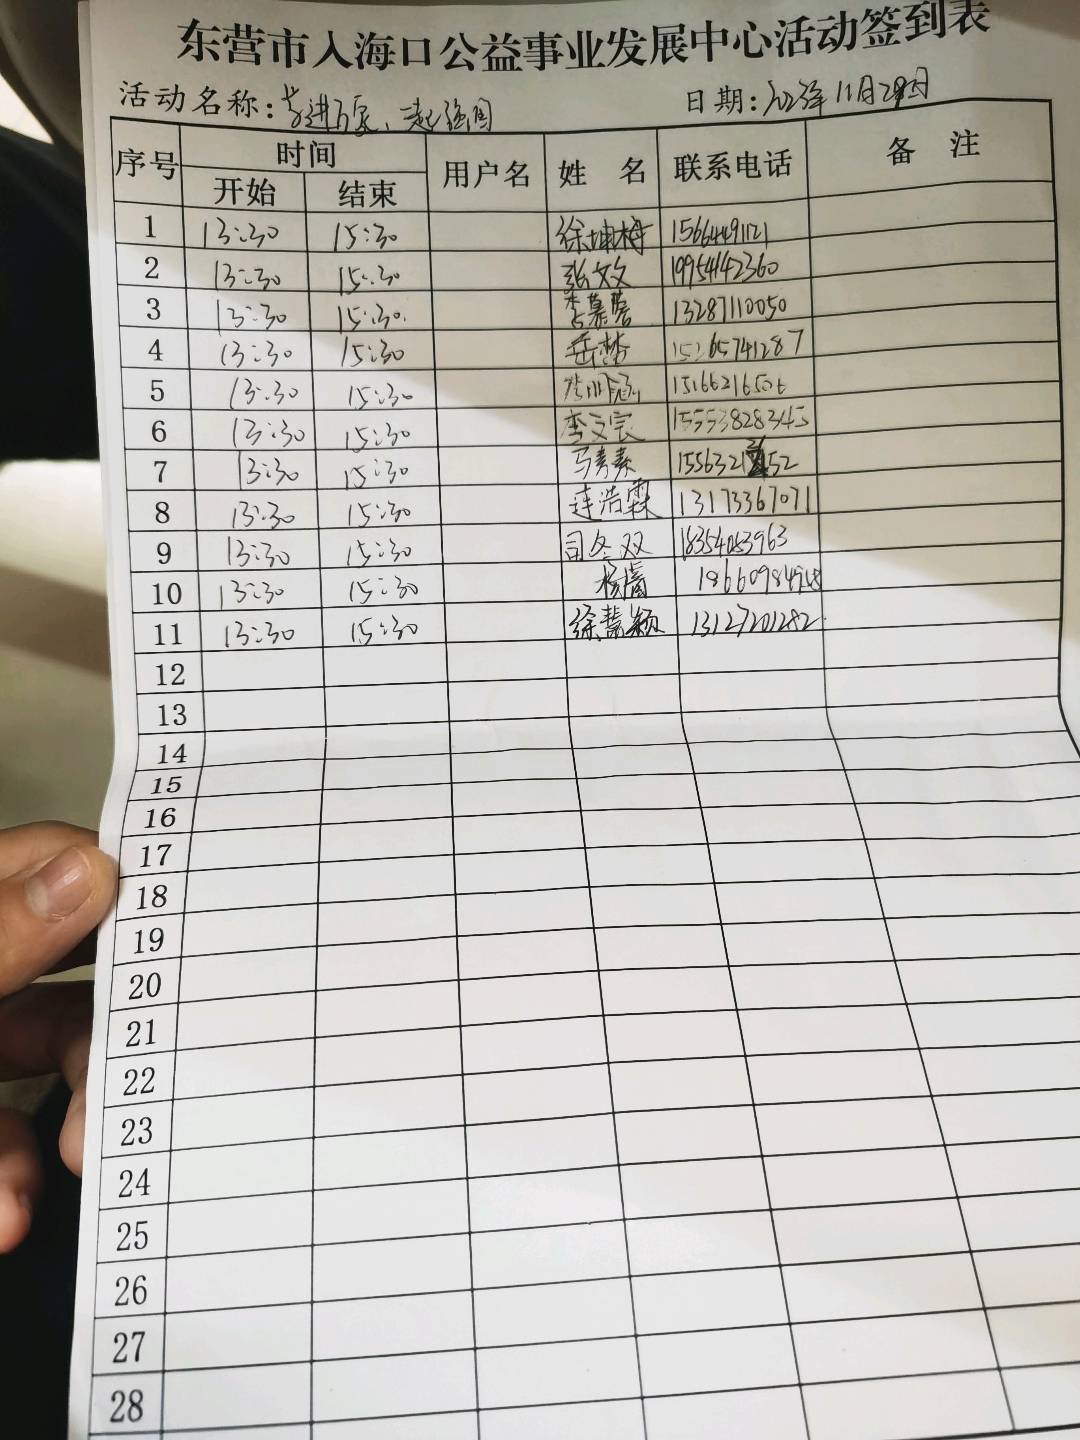 东营市入海口公益事业发展中心活动签到表
活动名称: 进万家、一起强国 日期: 2023年11月29日
序号 时间 用户名 姓名 联系电话 备注
开始 结束
1 13:30 15:30 徐坤梅 15664491121
2 13:30 15:30 张文文 19954142360
3 13:30 15:30 李慕蓉 13287110050
4 13:30 15:30 岳梦 15265741287
5 13:30 15:30 15166216506
6 13:30 15:30 李文宗 15553828345
7 13:30 15:30 马青素
8 13:30 15:30 连浩霖 13173367071
9 13:30 15:30 司冬双 18354053963
10 13:30 15:30 杨
11 13:30 15:30 徐慧颖 13127201282
12
13
14
15
16
17
18
19
20
21
22
23
24
25
26
27
28